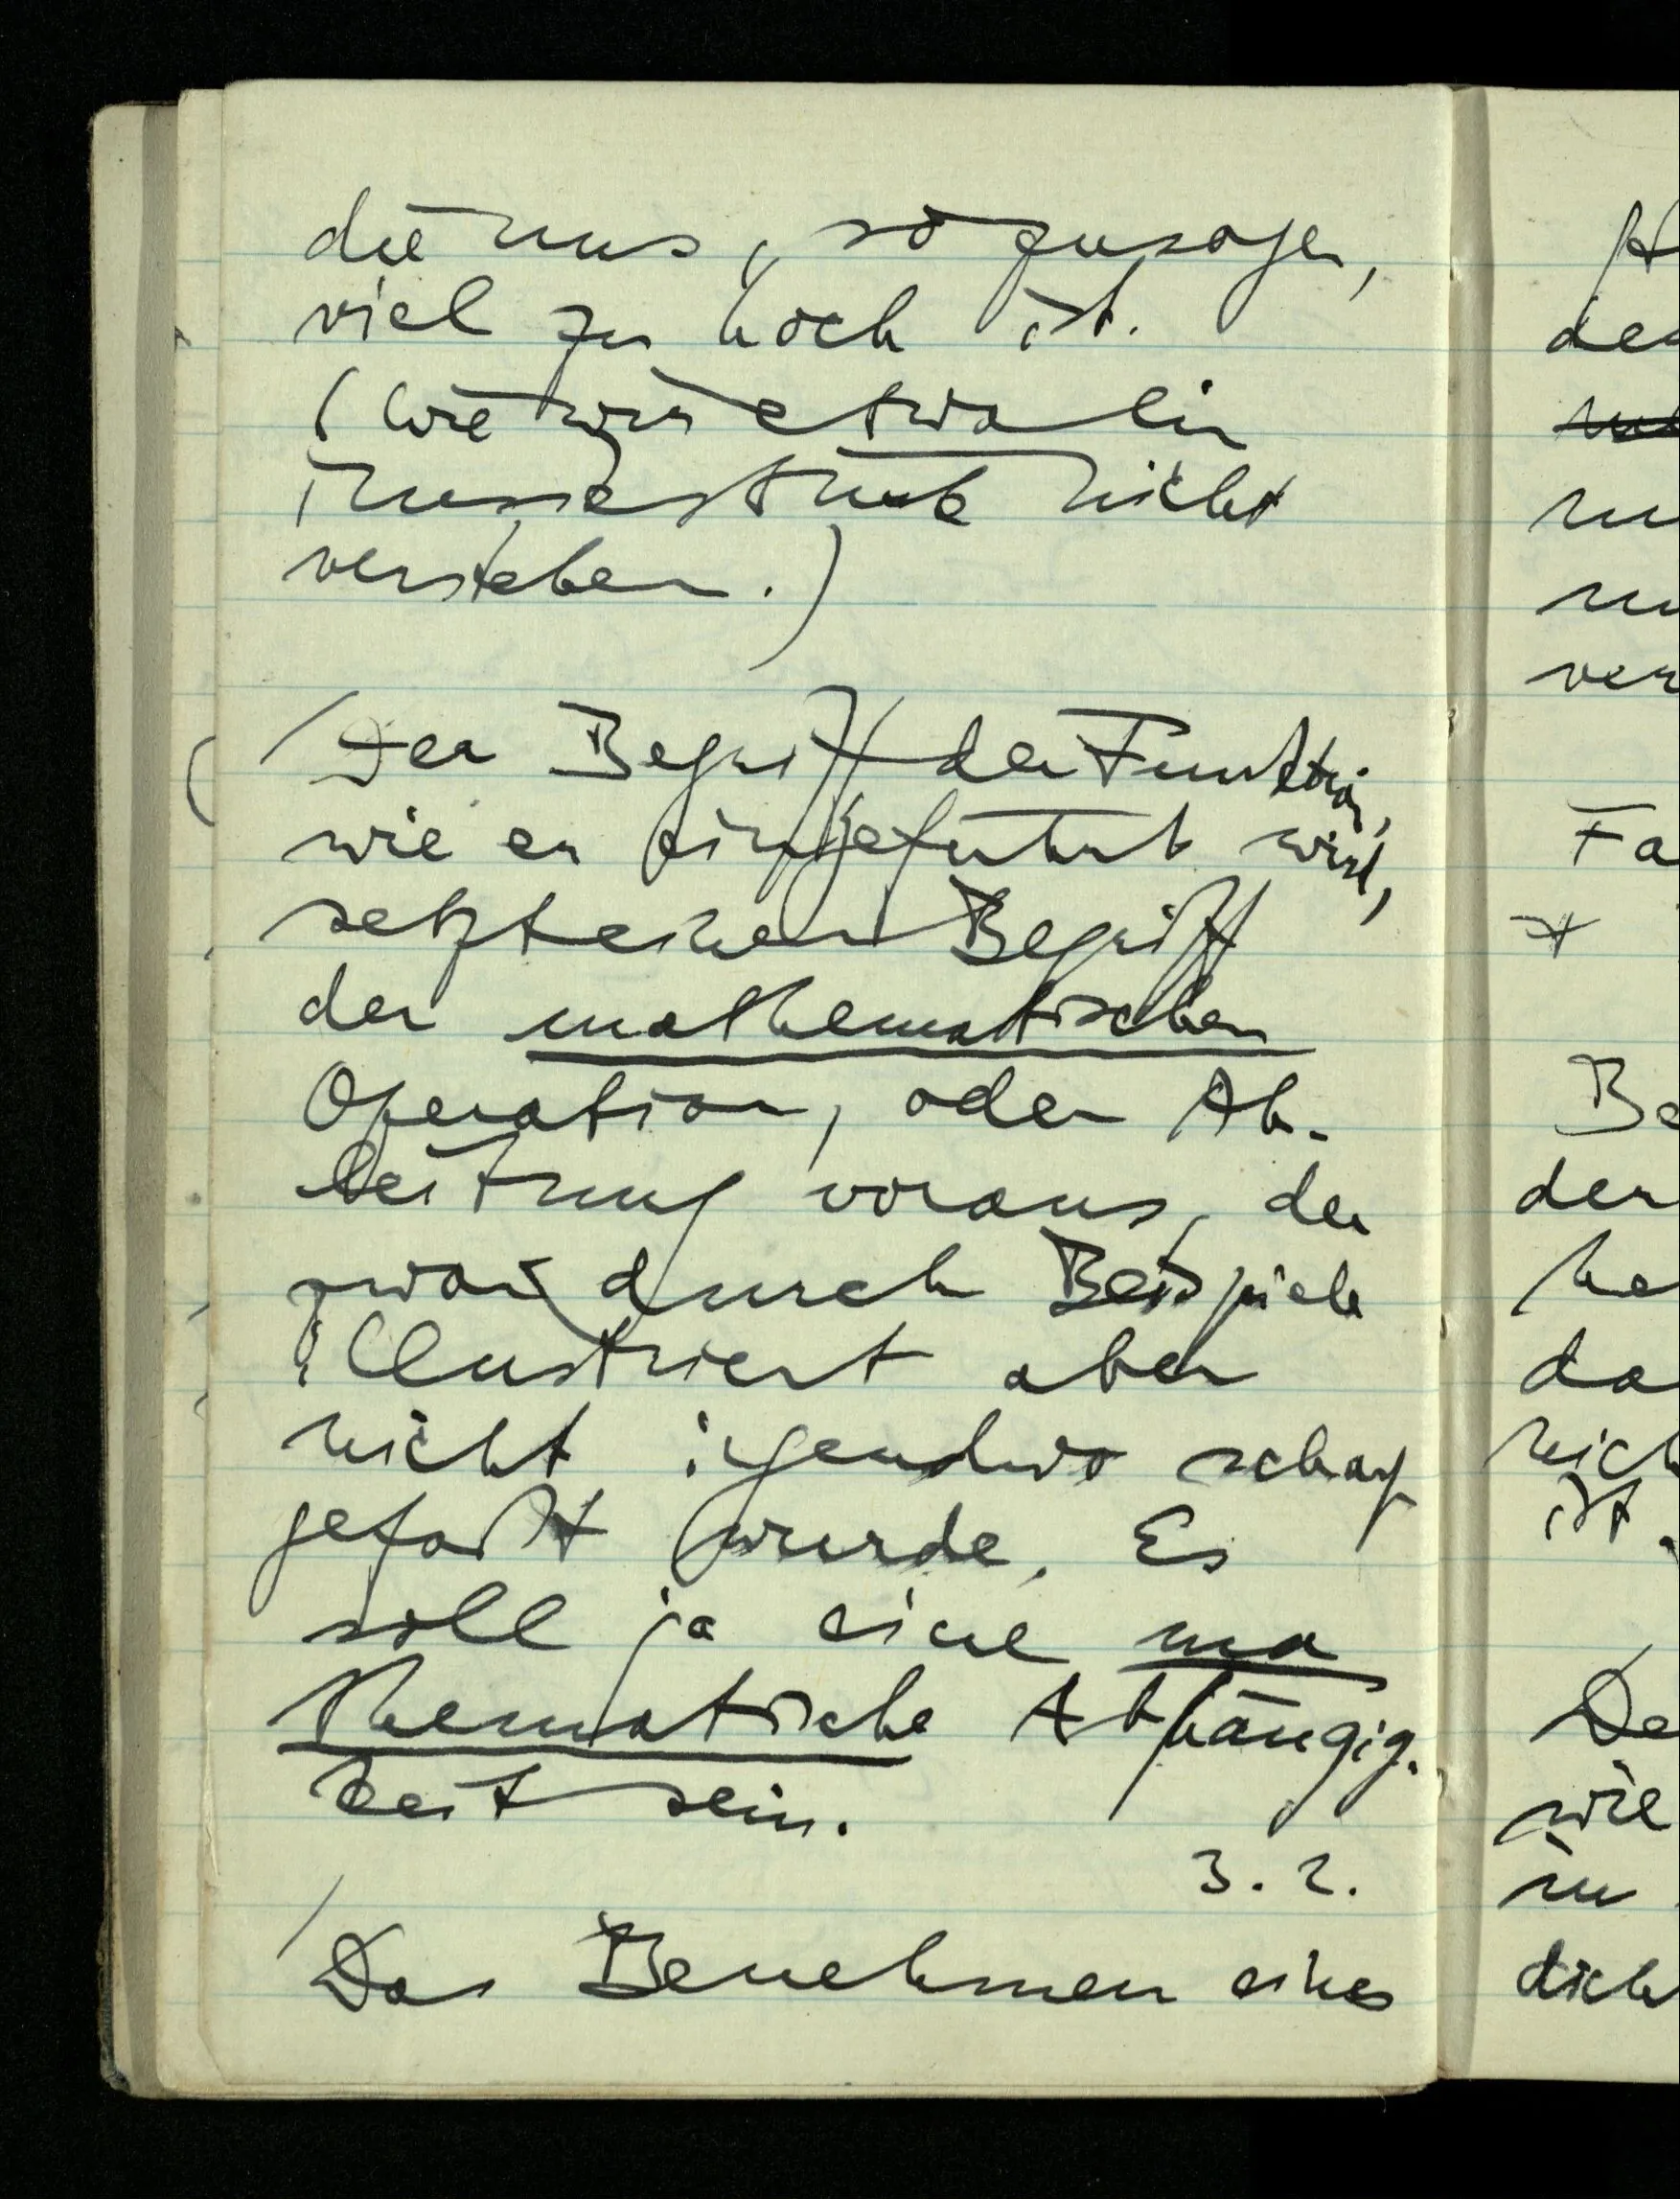 die uns, sozusagen,
viel zu hoch ist.
(Wie wir etwa ein
nicht
verstehen.)
/ Der Begriff der Funktion,
wie er eingeführt wird,
setzt einen Begriff
der mathematischen
Operation, oder Ab-
leitung voraus, der
zwar durch Beispiele
illustriert aber
nicht irgendwo scharf
gefaßt wurde. Es
soll ja eine ma
thematische Abhängig-
keit sein.
3.2.
/ Das Benehmen eines
ver
Fa
Be
der
he
da
nich
ist.
De
wie